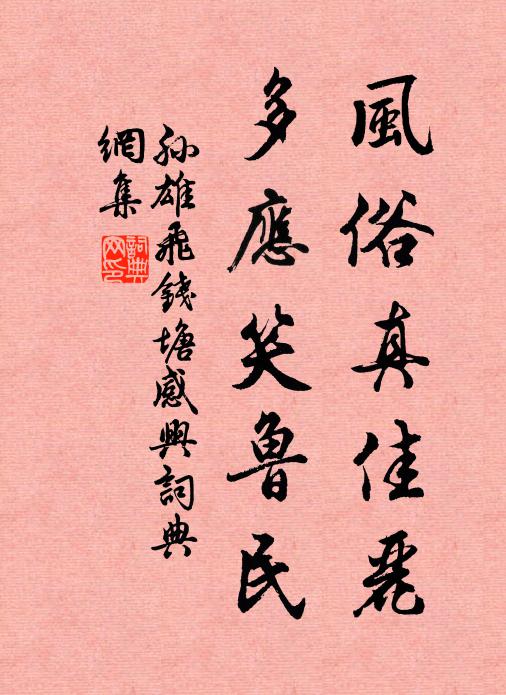 風俗真佳麗
多應笑魯民
孙雄飛錢塘感興詞典
網集
詞典
网印